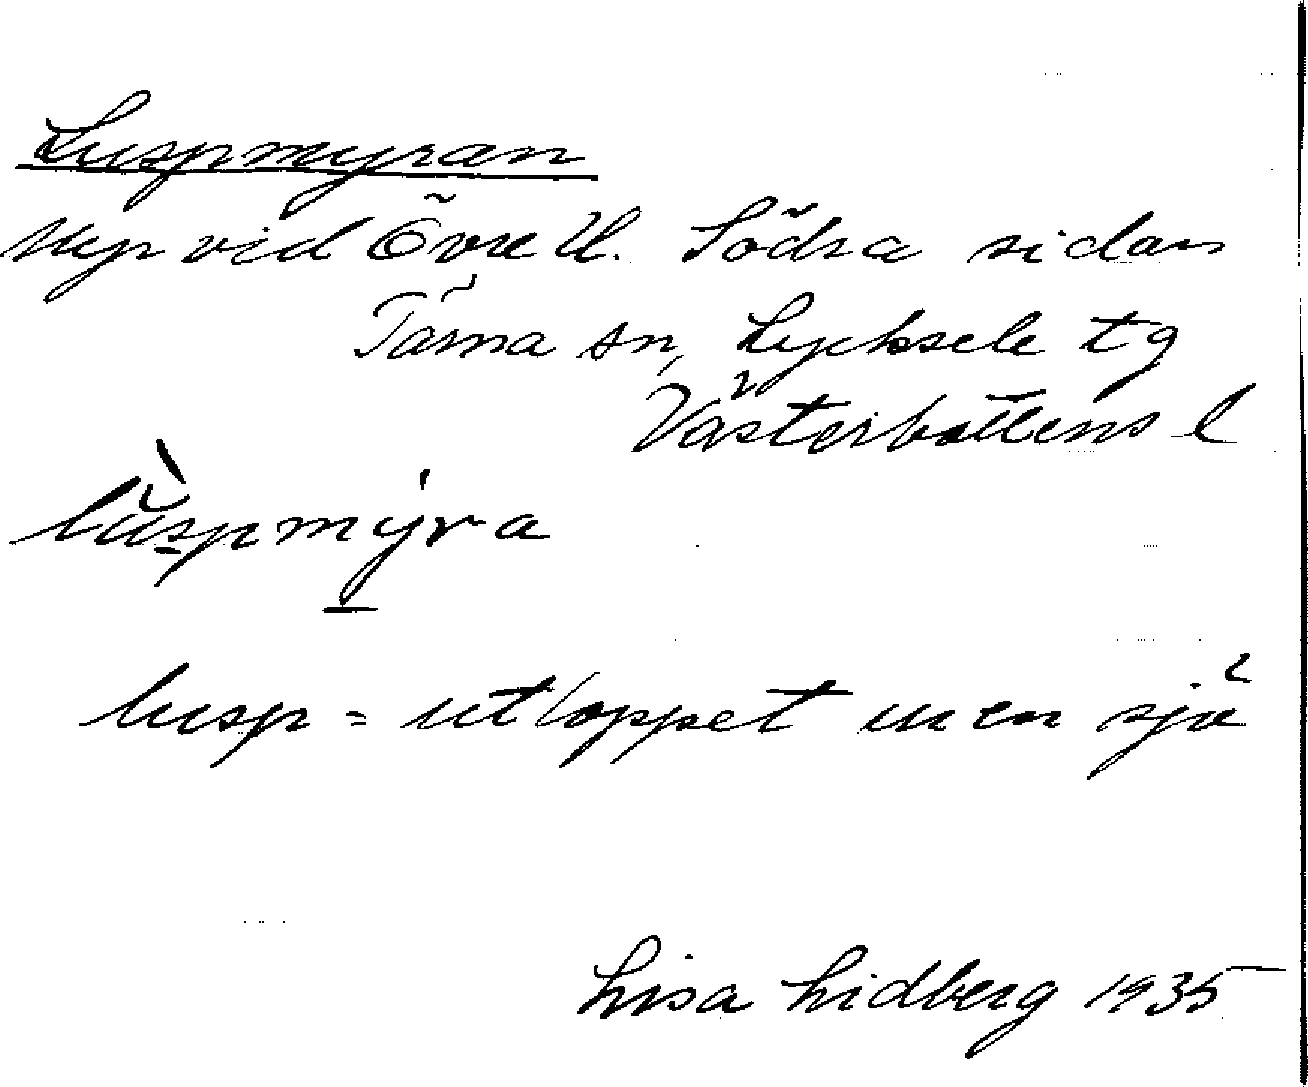 Luspmyran
Myr vid Övre U. Södra sidan
Tärna sn, Lycksele tg
Västerbottens l
luspmyra
lusp = utloppet ur en sjö
Lisa Lidberg 1935